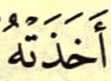 أَخَذَتْهُ